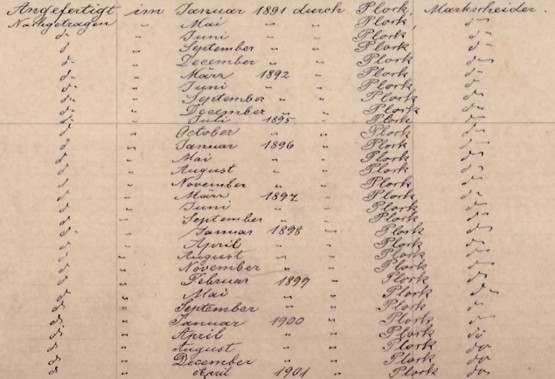 Angefertigt im Januar 1891 durch Plock, Markscheider.
Nachgetragen " Mai " " Plock, do
do " Juni " " Plock do
do " September " " Plock do
do " December " " Plock do
do " März 1892 " Plock do
do " Juni " " Plock do
do " September " " Plock do
do " December " " Plock do
do " Juli 1895 " Plock do
do " October " " Plock do
do " Januar 1896 " Plock do
do " Mai " " Plock do
do " August " " Plock do
do " November " " Plock do
do " März 1897 " Plock do
do " Juni " " Plock do
do " September " " Plock do
do " Januar 1898 " Plock do
do " April " " Plock do
do " August " " Plock do
do " November " " Plock do
do " Februar 1899 " Plock do
do " Mai " " Plock do
do " September " " Plock do
do " Januar 1900 " Plock do
do " April " " Plock do
do " August " " Plock do
do " December " " Plock do
do " April 1901 " Plock do